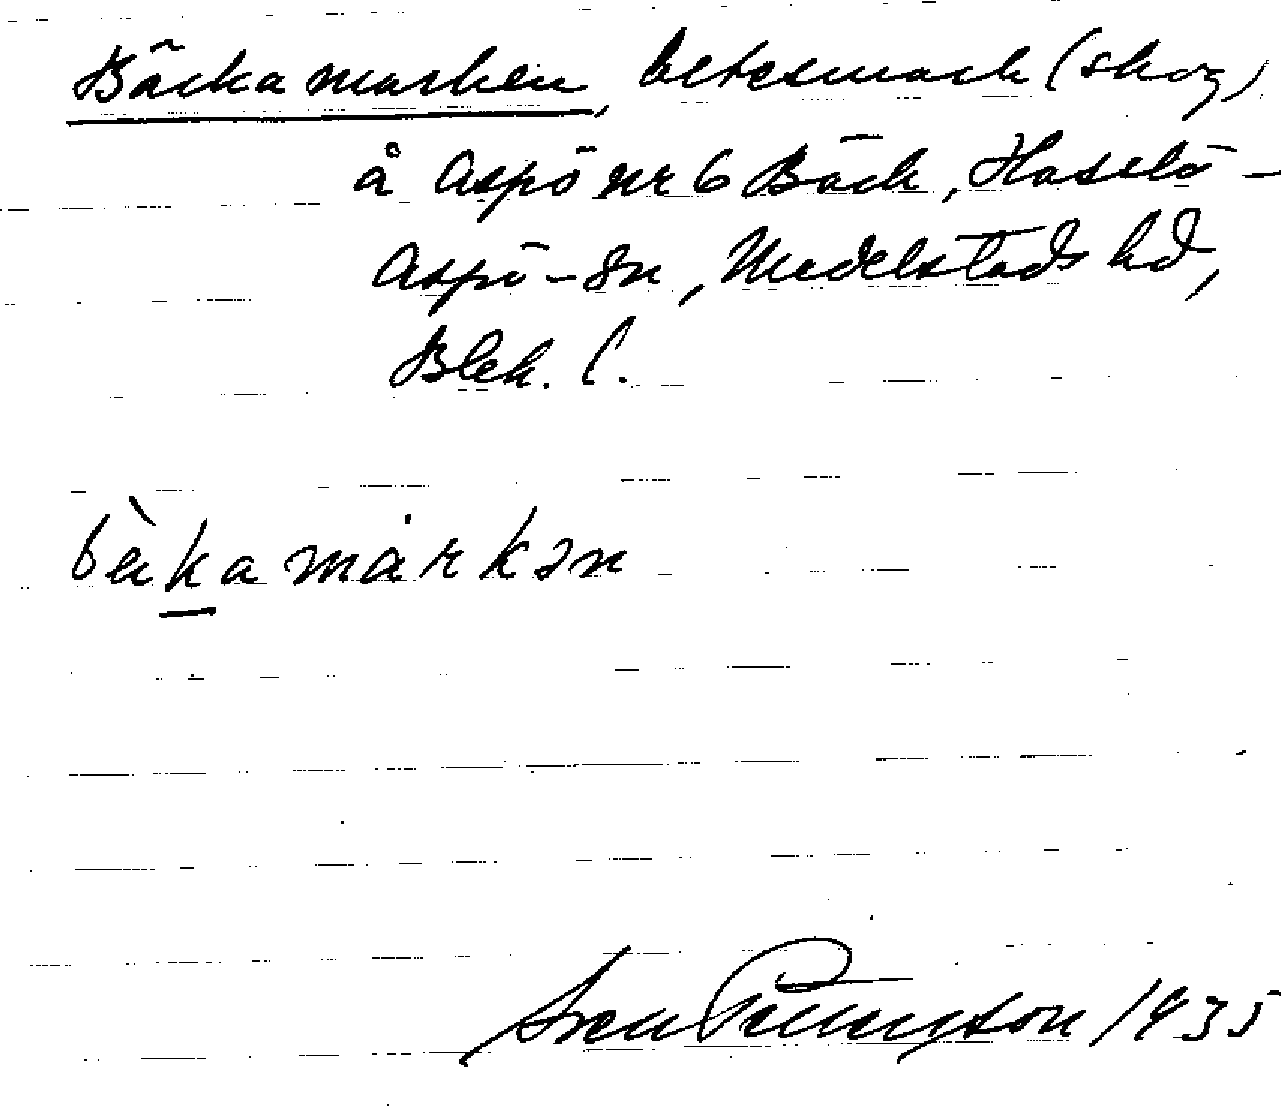 Bäckamarken, betesmark (skog)
å Aspö nr 6 Bäck, Hasslö-
Aspö-sn, Medelstads hd,
Blek. l.
bèkamarkən
Sven 1935